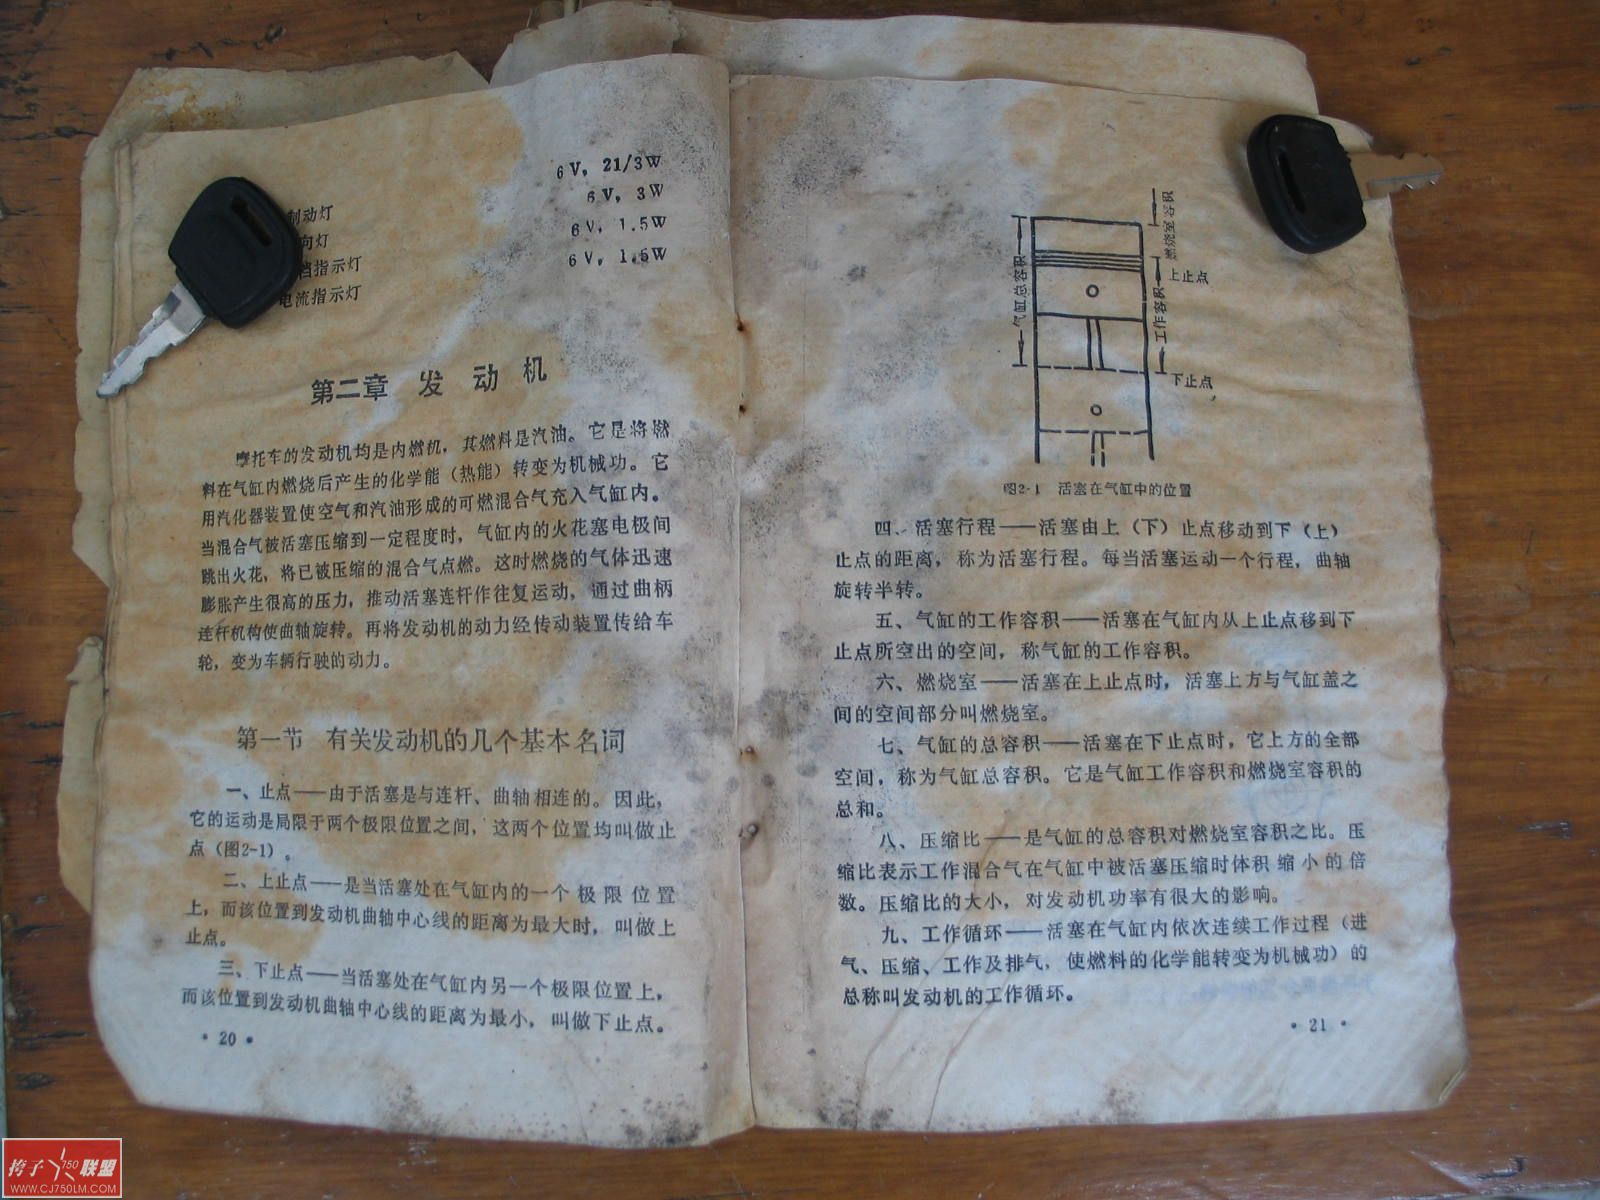 6V，21/3W
制动灯 6V，3W
向灯 6V，1.5W
档指示灯 6V，1.5W
电流指示灯
第二章 发动机
摩托车的发动机均是内燃机，其燃料是汽油。它是将燃
料在气缸内燃烧后产生的化学能（热能）转变为机械功。它
用汽化器装置使空气和汽油形成的可燃混合气充入气缸内。
当混合气被活塞压缩到一定程度时，气缸内的火花塞电极间
跳出火花，将已被压缩的混合气点燃。这时燃烧的气体迅速
膨胀产生很高的压力，推动活塞连杆作往复运动，通过曲柄
连杆机构使曲轴旋转。再将发动机的动力经传动装置传给车
轮，变为车辆行驶的动力。
第一节 有关发动机的几个基本名词
一、止点——由于活塞是与连杆、曲轴相连的。因此，
它的运动是局限于两个极限位置之间，这两个位置均叫做止
点（图2-1）。
二、上止点——是当活塞处在气缸内的一个极限位置
上，而该位置到发动机曲轴中心线的距离为最大时，叫做上
止点。
三、下止点——当活塞处在气缸内另一个极限位置上，
而该位置到发动机曲轴中心线的距离为最小，叫做下止点。
·20·
气缸总容积
燃烧室容积
上止点
工作容积
下止点
图2-1 活塞在气缸中的位置
四、活塞行程——活塞由上（下）止点移动到下（上）
止点的距离，称为活塞行程。每当活塞运动一个行程，曲轴
旋转半转。
五、气缸的工作容积——活塞在气缸内从上止点移到下
止点所空出的空间，称气缸的工作容积。
六、燃烧室——活塞在上止点时，活塞上方与气缸盖之
间的空间部分叫燃烧室。
七、气缸的总容积——活塞在下止点时，它上方的全部
空间，称为气缸总容积。它是气缸工作容积和燃烧室容积的
总和。
八、压缩比——是气缸的总容积对燃烧室容积之比。压
缩比表示工作混合气在气缸中被活塞压缩时体积缩小的倍
数。压缩比的大小，对发动机功率有很大的影响。
九、工作循环——活塞在气缸内依次连续工作过程（进
气、压缩、工作及排气，使燃料的化学能转变为机械功）的
总称叫发动机的工作循环。
·21·
挎子750联盟
WWW.CJ750LM.COM